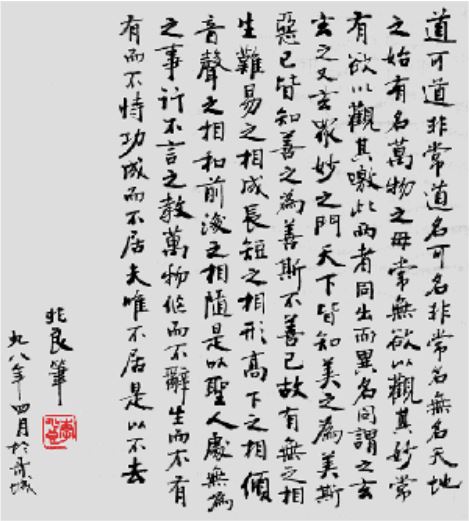 道可道非常道名可名非常名無名天地
之始有名萬物之母常無欲以觀其妙常
有欲以觀其噭此兩者同出而異名同謂之玄
玄之又玄眾妙之門天下皆知美之為美斯
惡已皆知善之為善斯不善已故有無之相
生難易之相成長短之相形高下之相傾
音聲之相和前後之相隨是以聖人處無為
之事行不言之教萬物作而不辭生而不有
有而不恃功成而不居夫唯不居是以不去
兆良筆
九八年四月於城